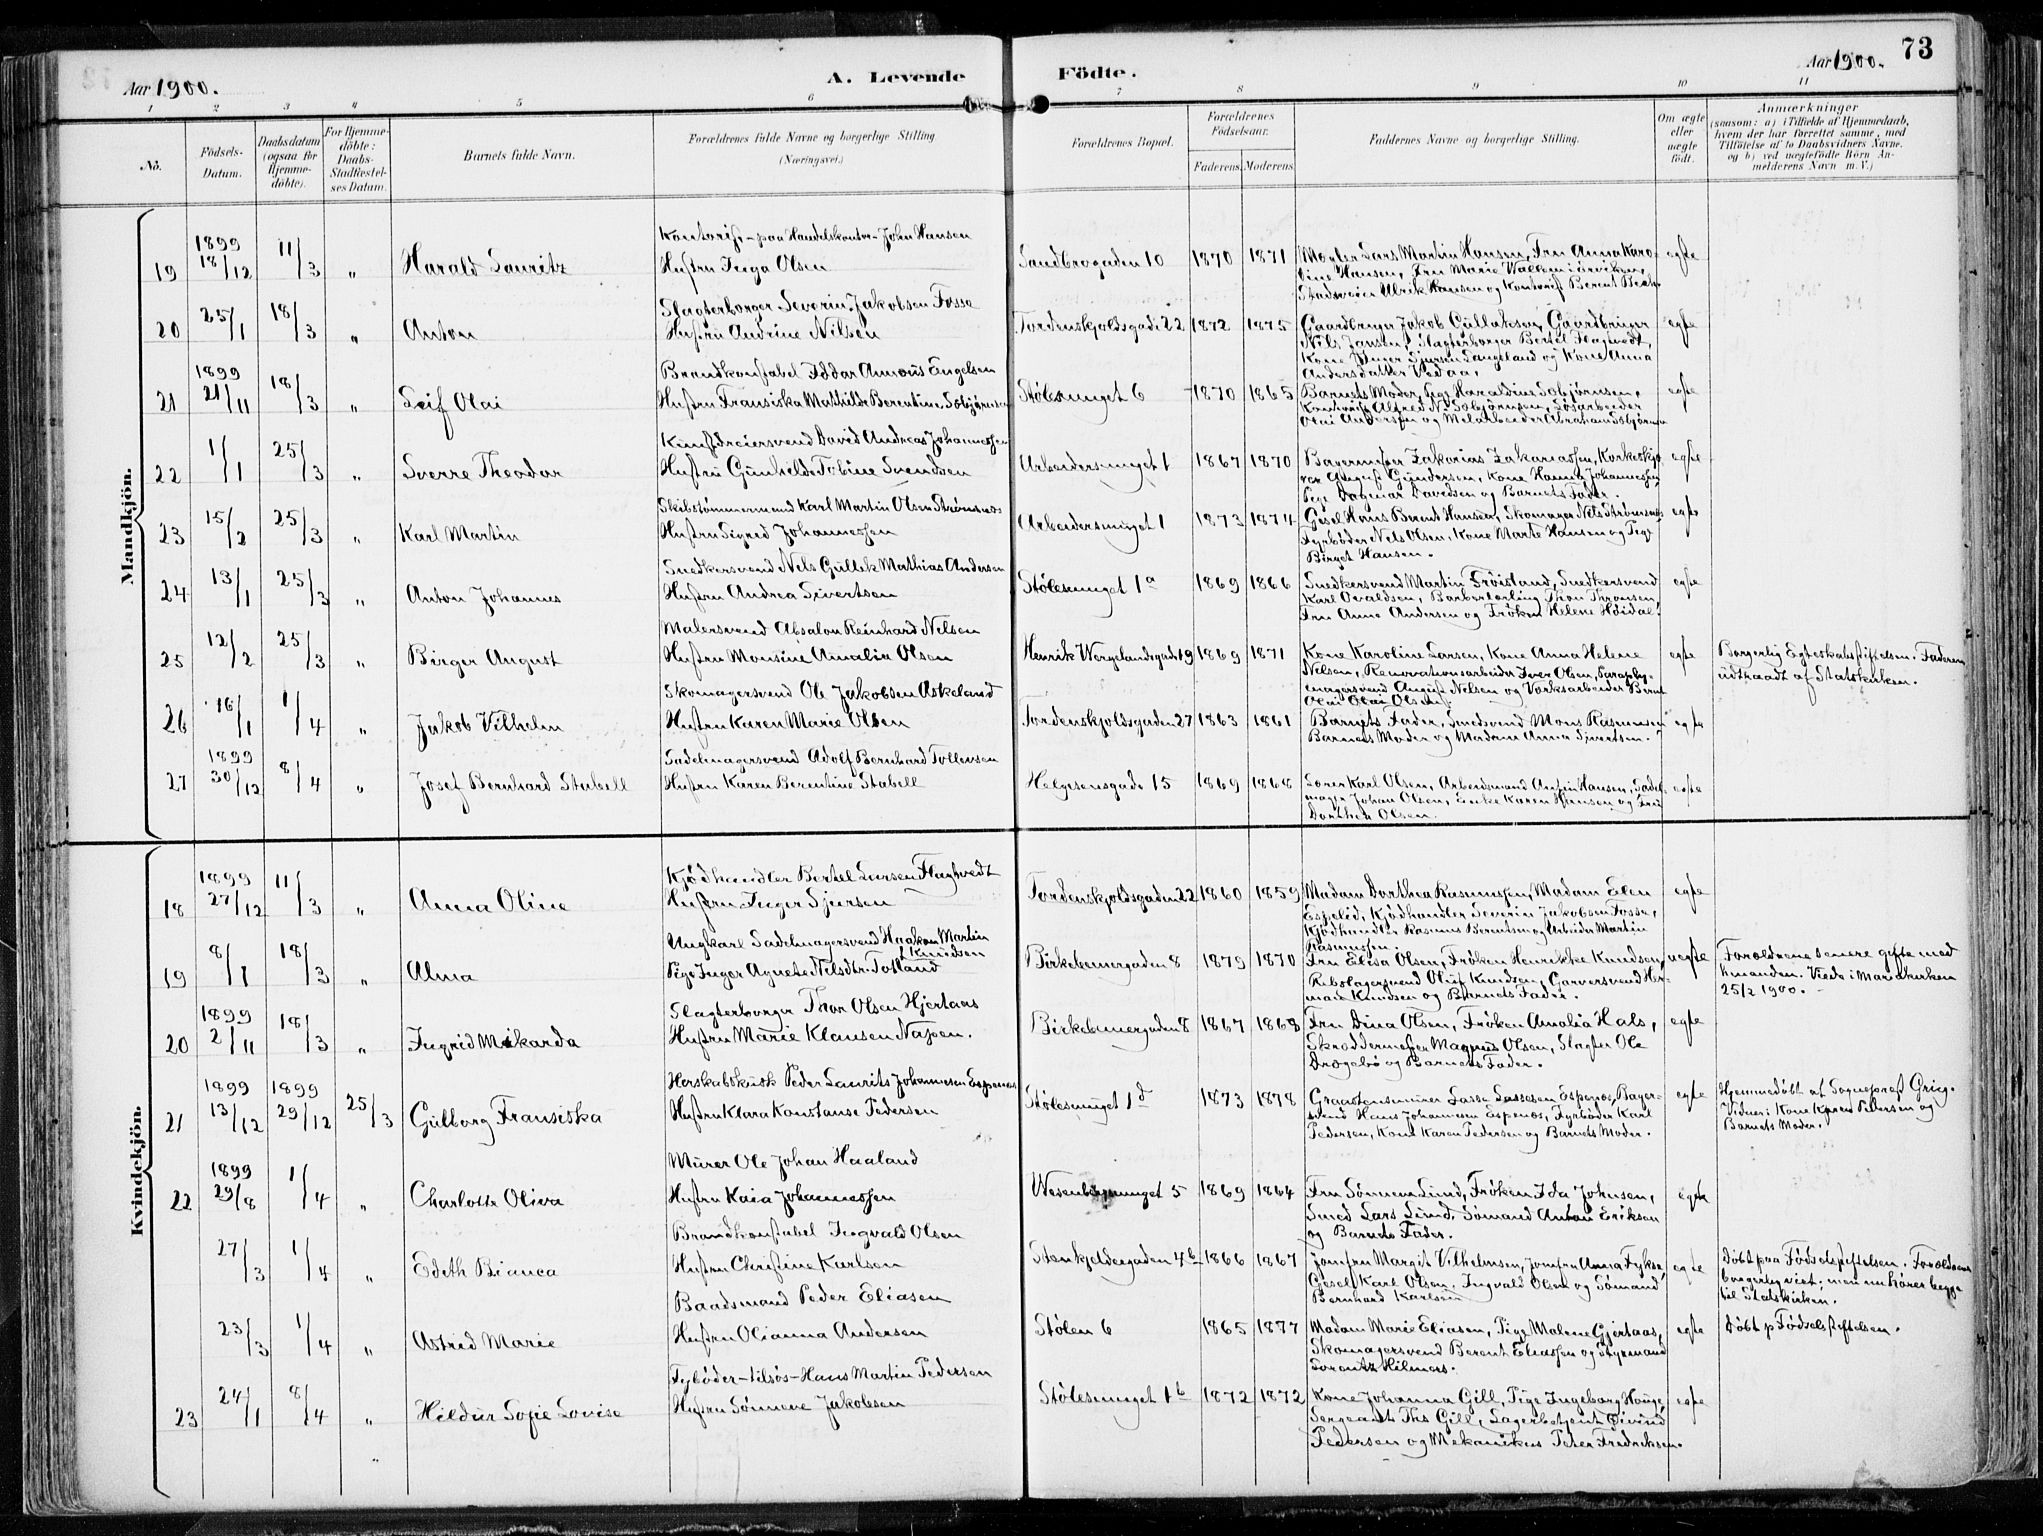 73
Aar 1900.
A. Levende
Födte.
Aar 1900.
1 2 3 4 5 6 7 8 9 10 11
No.
Födsels-
Datum.
Daabsdatum
(ogsaa for
Hjemme-
döbte).
For Hjemme-
döbte:
Daabs-
Stadfæstel-
ses Datum.
Barnets fulde Navn.
Forældrenes fulde Navne og borgerlige Stilling
(Næringsvei.)
Forældrenes Bopæl.
Forældrenes
Födselsaar.
Faderens. Moderens.
Faddernes Navne og borgerlige Stilling.
Om ægte
eller
uægte
født.
Anmærkninger
(saasom: a) i Tilfælde af Hjemmedaab,
hvem der har forrettet samme, med
Tilföielse af to Daabsvidners Navne,
og b) ved uægtefödte Börn An-
melderens Navn m. V.)
Mandkjön.
19 1899 18/12 11/3 „ Harald Lauritz
Kontorist - paa Handelskontor - John Hansen
Hustru Inga Olsen
Sandbrogaden 10 1870 1871
Mægler Lars Martin Hansen, Fru Anna Karo-
line Hansen, Fru Marie Wallem
Ulrik Hansen og Kontorist Berent
egte
20 25/1 18/3 „ Anton
Slagterborger Severin Jakobsen Fosse
Hustru Andrine Nilsen
Tordenskjoldsgade 22 1872 1875
Gaardbruger Jakob Gullaksen, Gaardbruger
Nils Jansen, Slagterborger Bertel Flagtvedt,
Kone Inger Sjursen Langeland og Kone Anna
Andersdatter Vedaa.
egte
21 1899 21/11 18/3 „ Leif Olai
Brandkonstabel Eddar Annæus Engelsen
Hustru Fransiska Mathilde Berentine Esbjørnsen
Stølesmuget 6 1870 1865
Barnets Moder, Pige Haraldine Esbjørnsen,
Kontorist Alfred N. Esbjørnsen, Løsarbeider
Olai Andersen og Metalarbeider Abraham Esbjørnsen
egte
22 1/1 25/3 „ Sverre Theodor
Kunstdreiersvend David Andreas Johannessen
Hustru Gunhilde Tobine Svendsen
Arbeidersmuget 1 1867 1870
Bagermester Zakarias Zakariassen, Korkeskjæ-
rer August Gundersen, Kone Hanna Johannessen,
Pige Dagmar Davidsen og Barnets Fader.
egte
23 15/2 25/3 Karl Martin
Skibstømmermand Karl Martin Olsen Strømsnes
Hustru Sigrid Johannessen
Arbeidersmuget 1 1873 1874
Gesel Hans Berent Hansen, Skomager Nils Strømsnes,
Fyrbøder Nels Olsen, Kone Marte Hansen og Pige
Birget Hansen.
egte
24 13/1 25/3 „ Anton Johannes
Snedkersvend Nels Gullek Mathias Andersen
Hustru Andrea Sivertsen
Stølesmuget 1a 1869 1866
Snedkersvend Martin Frøistand, Snedkersvend
Karl Osvaldsen, Barberlærling Thon Thronsen,
Fru Anne Andersen og Frøken Helene Høidal.
egte
25 12/2 25/3 „ Birger August
Malersvend Absalon Reinhard Nilsen
Hustru Monsine Amalia Olsen
Henrik Wergelandsgade 19 1869 1871
Kone Karoline Larsen, Kone Anna Helene
Nelsen, Renovationsarbeider Iver Olsen, Paraply-
magersvend August Nelsen og Verksarbeider Bernt
Olai Olsen.
egte
Borgerlig Egteskabsstiftelsen. Faderen
udtraadt af Statskirken.
26 16/1 1/4 „ Jakob Vilhelm
Skomagersvend Ole Jakobsen Askeland
Hustru Karen Marie Olsen
Tordenskjoldsgaden 27 1863 1861
Barnets Fader, Smedsvend Mons Rasmussen
Barnets Moder og Madam Anna Sivertsen.
egte
27 1899 30/12 8/4 „ Josef Bernhard Stabell
Sadelmagersvend Adolf Bernhard Tollevsen
Hustru Karen Berentine Stabell
Helgesensgade 15 1869 1868
Lorer Karl Olsen, Arbeidsmand Anton Hansen, Sadel-
mager Johan Olsen, Enke Karen Hansen og Fru
Dorthea Olsen.
egte
Kvindekjön.
18 1899 27/12 11/3 „ Anna Oline
Kjødhandler Bertel Larsen Flagtvedt
Hustru Inger Sjursen
Tordenskjoldsgaden 22 1860 1859
Madam Dorthea Rasmussen, Madam Elen
Espelid, Kjødhandler Severin Jakobsen Fosse,
Kjødhandler Rasmus Berentsen og Arbeider Martin
Rasmussen.
egte
19 8/1 18/3 „ Alma
Ungkarl Sadelmagersvend Haakon Martin
Knudsen
Pige Inger Agnete Nilsdtr. Totland
Birkebeinergaden 8 1879 1870
Fru Elisa Olsen, Frøken Henrikke Knudsen,
Rebslagersvend Oluf Knudsen, Garversvend Her-
man Knudsen og Barnets Fader.
uegte
Forældrene senere gifte med
hinanden. Viede i Mariakirken
25/2 1900.
20 1899 2/11 18/3 „ Ingrid Mikarda
Slagterborger Thor Olsen Hjertaas
Hustru Marie Klausen Næsen.
Birkebeinergaden 8 1867 1868
Fru Dina Olsen, Frøken Amalia Hals,
Skræddermester Magnus Olsen, Slagter Ole
Dragebø og Barnets Fader.
egte
21 1899 13/12 1899 29/12 25/3 Gulborg Fransiska
Herskabskusk Peder Laurits Johannesen Espenes
Hustru Klara Konstanse Pedersen
Stølesmuget 1d 1873 1878
Graastensminer Lasse Lassesen Espenæs, Bager-
svend Hans Johannesen Espenæs, Fyrbøder Karl
Pedersen, Kone Karen Pedersen og Barnets Moder.
egte
Hjemmedøbt af Sogneprest Grieg.
Vidner: Kone Karen Pedersen og
Barnets Moder.
22 1899 29/8 1/4 „ Charlotte Oliva
Murer Ole Johan Haaland
Hustru Kaia Johannessen
Wesenbergsmuget 5 1869 1864
Fru Sønneva Lund, Frøken Ida Johnsen,
Smed Lars Lund, Sømand Anton Eriksen
og Barnets Fader.
egte
27/3 1/4 „ Edith Bianca
Brandkonstabel Ingvald Olsen
Hustru Christine Karlsen
Stenkjeldergaden 4b 1866 1867
Jomfru Margit Vilhelmsen, Jomfru Anna Fykse,
Gesel Karl Olsen, Ingvald Olsen og Sømand
Bernhard Karlsen
egte
Døbt paa Fødselsstiftelsen. Forældrene
borgerlig viet; men nu hører begge
til Statskirken.
23/3 1/4 „ Astrid Marie
Baadsmand Peder Eliasen
Hustru Olianna Andersen
Stølen 6 1865 1877
Madam Marie Eliasen, Pige Malene Gjertaas,
Skomagersvend Berent Eliassen og Styrmand
Lorentz Hilmers.
egte
Døbt p Fødselsstiftelsen.
23 24/1 8/4 „ Hildur Sofie Lovise
Fyrbøder - tilsøs - Hans Martin Pedersen
Hustru Sønneve Jakobsen
Stølesmuget 1b 1872 1872
Kone Johanna Gill, Pige Ingeborg Hauge,
Sergeant Ths Gill, Lagerbetjent Eivind
Pedersen og Mekanikus Peter Fredriksen.
egte
„